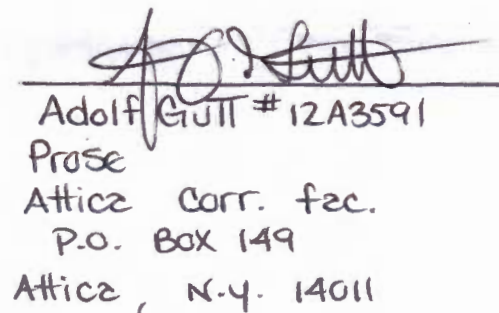 Adolf Gutt # 12A3591
Prose
Attica Corr. fac.
P.O. Box 149
Attica, N.Y. 14011